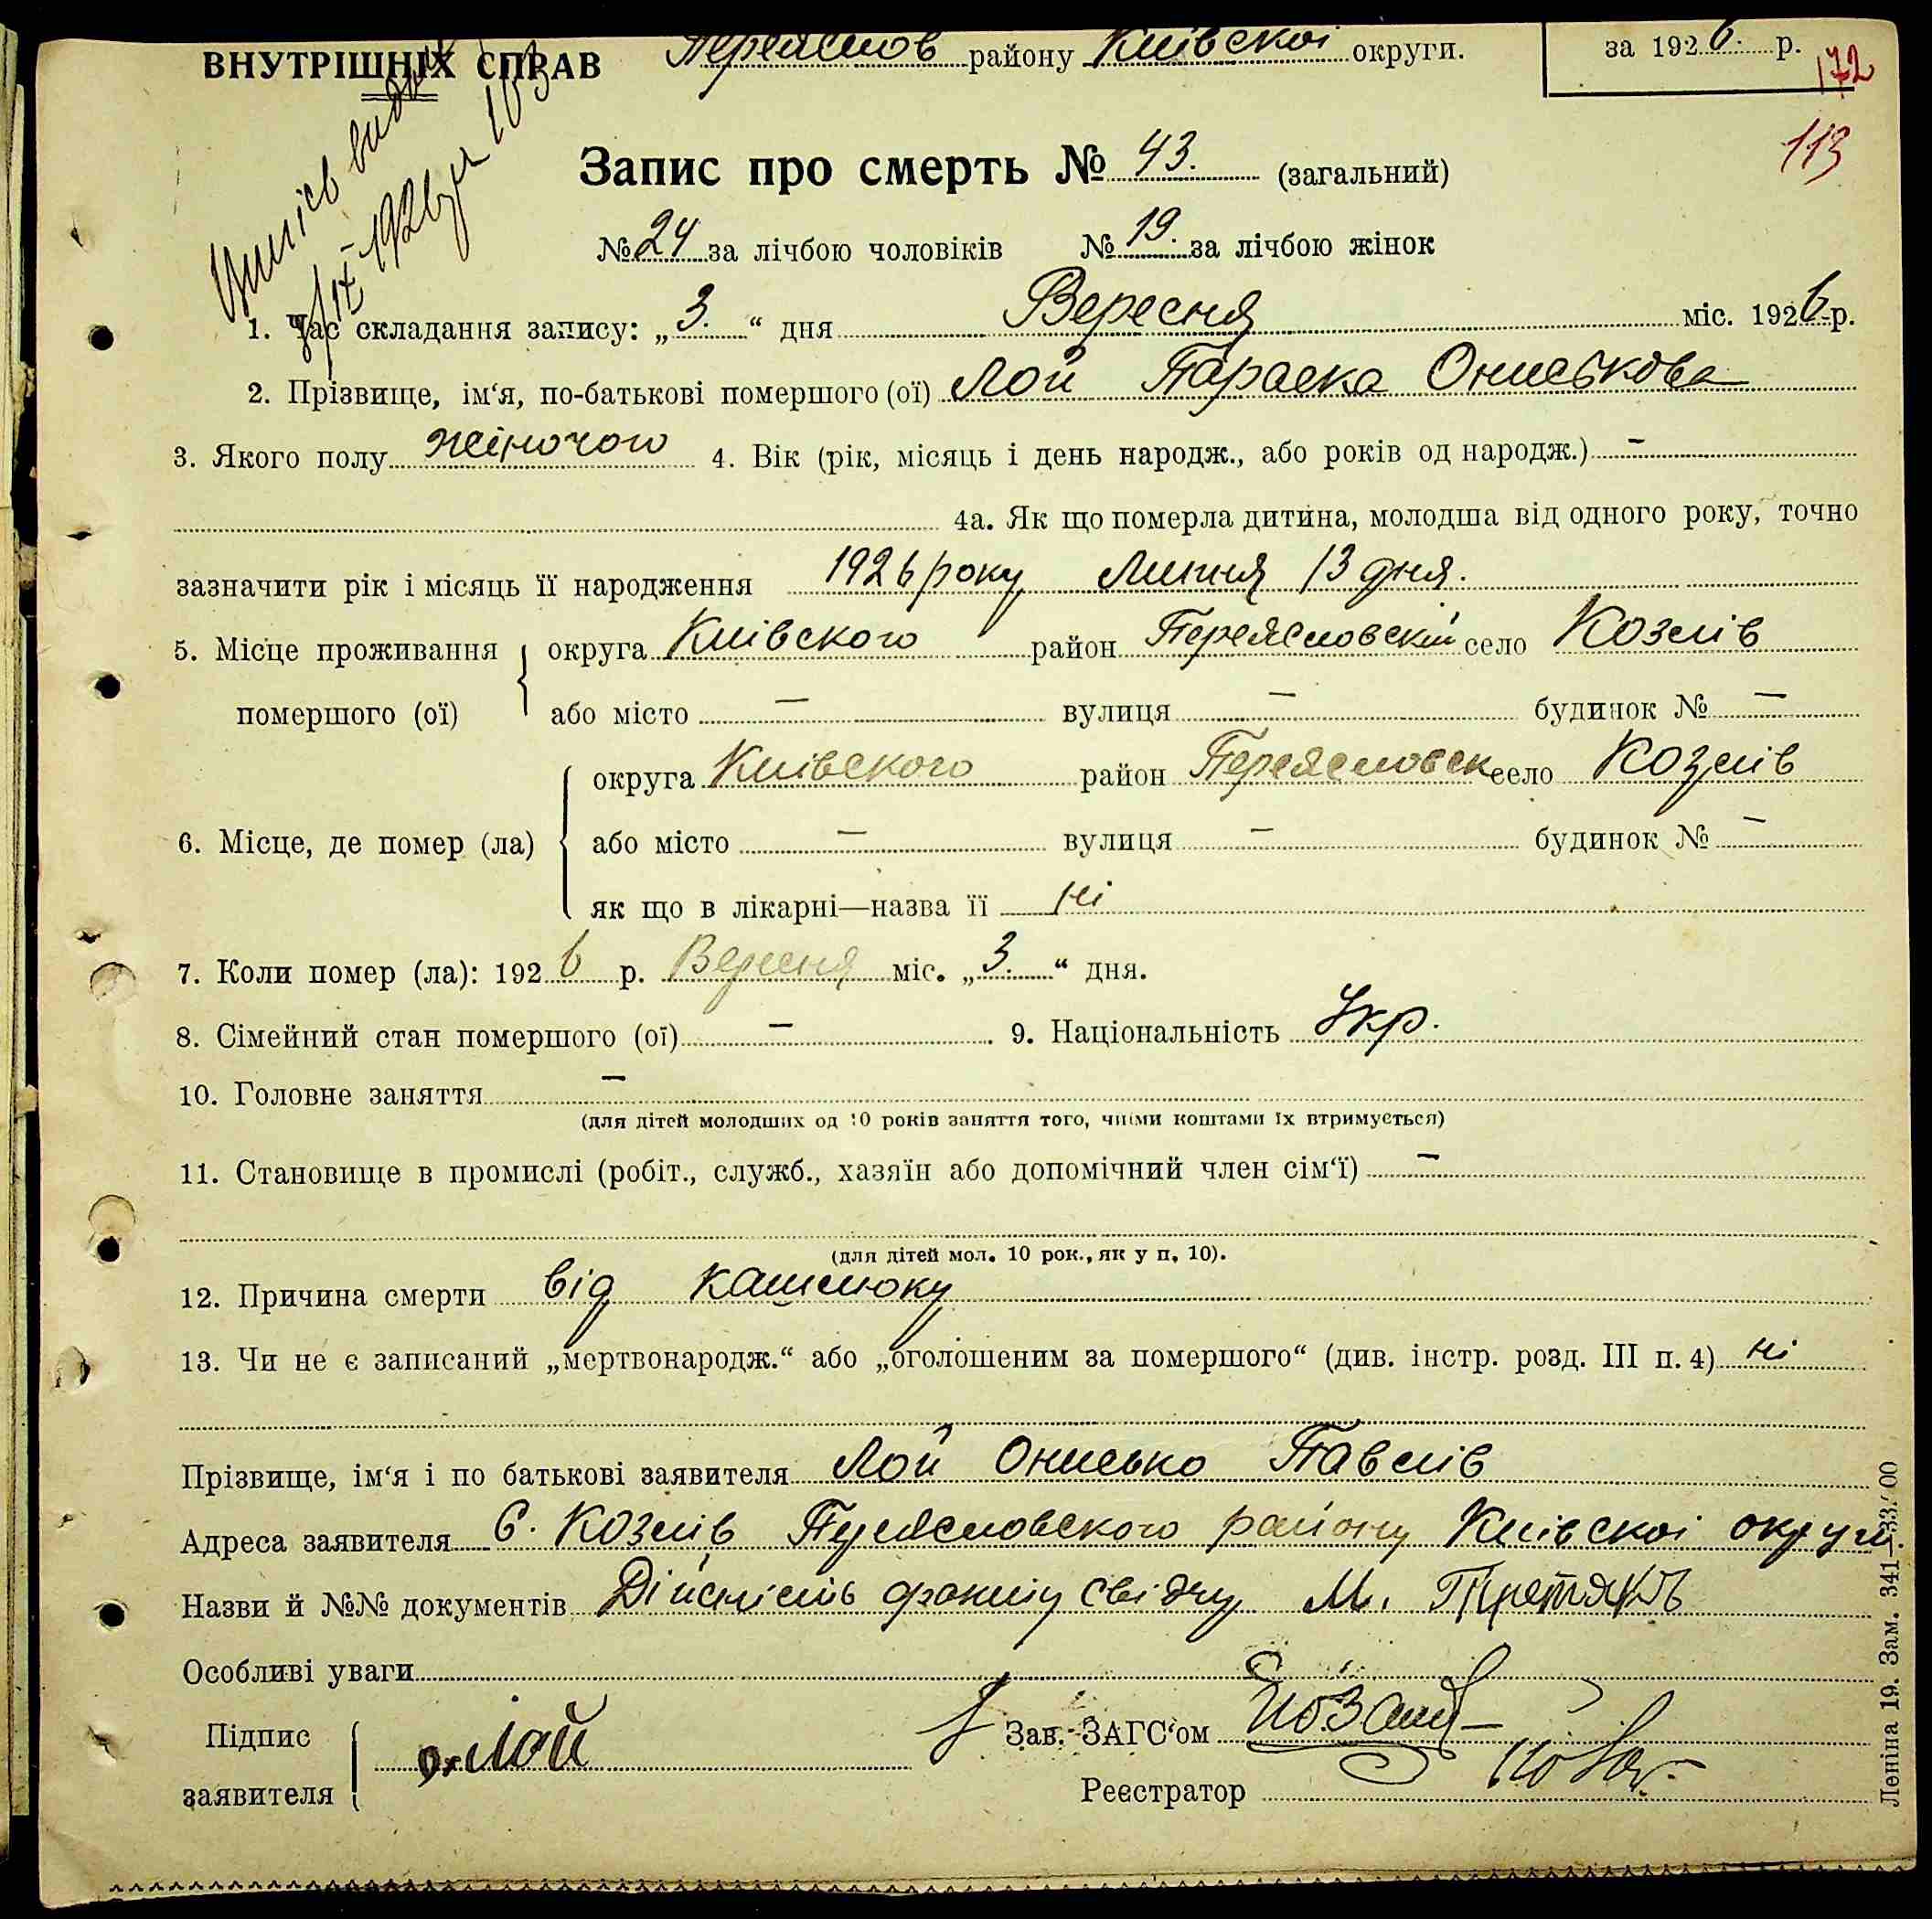 ВНУТРІШНІХ СПРАВ Переяслов району Київскоі округи. за 1926. р.
172
113
Запис про смерть № 43. (загальний)
№ 24 за лічбою чоловіків № 19. за лічбою жінок
1. Час складання запису: „3.“ дня Вересня міс. 1926 р.
2. Прізвище, ім‘я, по-батькові помершого (ої) Лой Параска Ониськова
3. Якого полу жіночого 4. Вік (рік, місяць і день народж., або років од народж.) –
4а. Як що померла дитина, молодша від одного року, точно
зазначити рік і місяць її народження 1926 року Липня 13 дня.
5. Місце проживання округа Киівского район Переясловскій село Козлів
помершого (ої) або місто — вулиця — будинок № —
округа Киівского район Переясловск село Козлів
6. Місце, де помер (ла) або місто — вулиця — будинок № —
як що в лікарні—назва її ні
7. Коли помер (ла): 1926 р. Вересня міс. „3.“ дня.
8. Сімейний стан помершого (ої) — . 9. Національність Укр.
10. Головне заняття —
(для дітей молодших од 10 років заняття того, чиїми коштами їх втримується)
11. Становище в промислі (робіт., служб., хазяїн або допомічний член сім‘ї) —
(для дітей мол. 10 рок., як у п. 10).
12. Причина смерти від кашлюку
13. Чи не є записаний „мертвонародж.“ або „оголошеним за помершого“ (див. інстр. розд. III п. 4) ні
Прізвище, ім‘я і по батькові заявителя Лой Онисько Павлів
Адреса заявителя С. Козлів Переясловского району Киівскоі округи.
Назви й №№ документів Дійсність факту свідчу М. Третяків
Особливі уваги
Підпис заявителя о. Лой Зав. ЗАГС‘ом
Реєстратор
Леніна 19. Зам. 341—33.